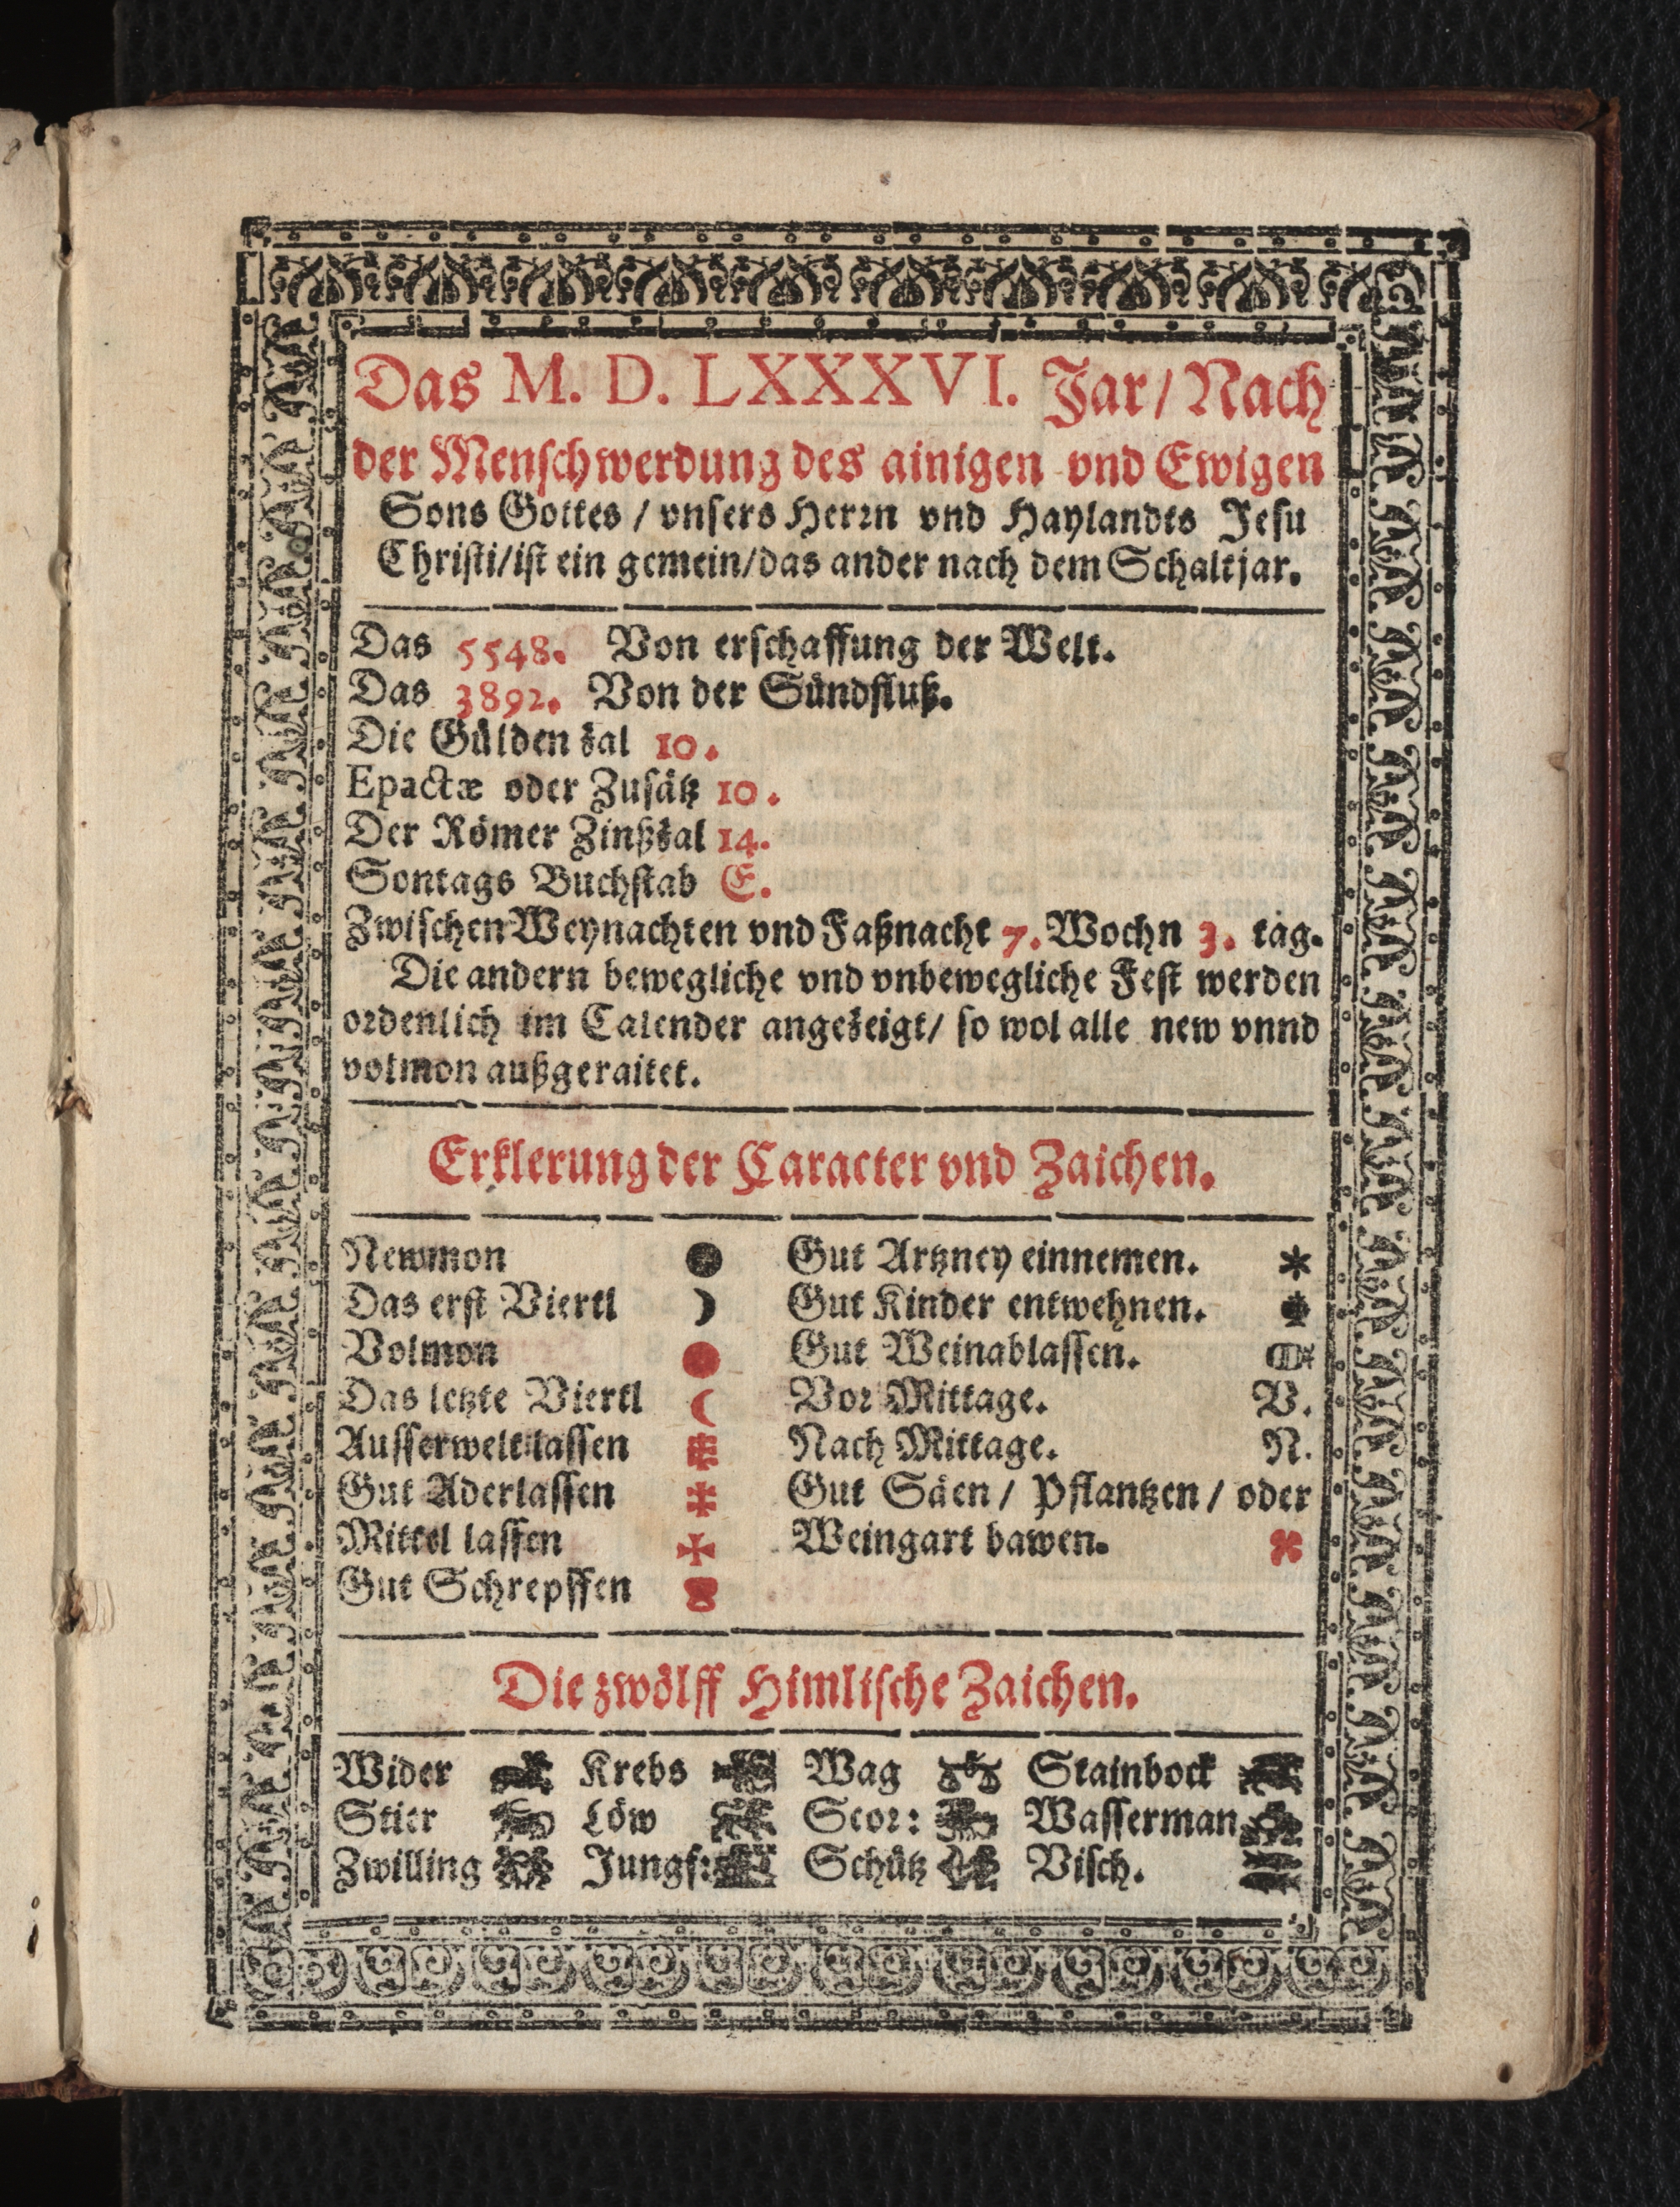 Das M. D. LXXXVI. Jar/ Nach
der Menschwerdung des ainigen vnd Ewigen
Sons Gottes / vnsers Herrn vnd Haylandts Jesu
Christi/ist ein gemein/das ander nach dem Schaltjar.
Das 5548. Von erschaffung der Welt.
Das 3892. Von der Sündfluß.
Die Gülden zal 10.
Epactæ oder Zusätz 10.
Der Römer Zinßzal 14.
Sontags Buchstab E.
Zwischen Weynachten vnd Faßnacht 7. Wochn 3. tag.
Die andern bewegliche vnd vnbewegliche Fest werden
ordenlich im Calender angezeigt/ so wol alle new vnnd
volmon außgeraitet.
Erklerung der Caracter vnd Zaichen.
Newmon Gut Artzney einnemen.
Das erst Viertl Gut Kinder entwehnen.
Volmon Gut Weinablassen.
Das letzte Viertl Vor Mittage. V.
Ausserwelt lassen Nach Mittage. N.
Gut Aderlassen Gut Säen / Pflantzen / oder
Mittel lassen Weingart bawen.
Gut Schrepffen
Die zwölff Himlische Zaichen.
Wider Krebs Wag Stainbock
Stier Löw Scor: Wasserman
Zwilling Jungf: Schütz Visch.